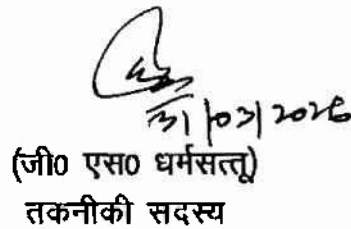 31/03/2026
(जी0 एस0 धर्मसत्तू)
तकनीकी सदस्य